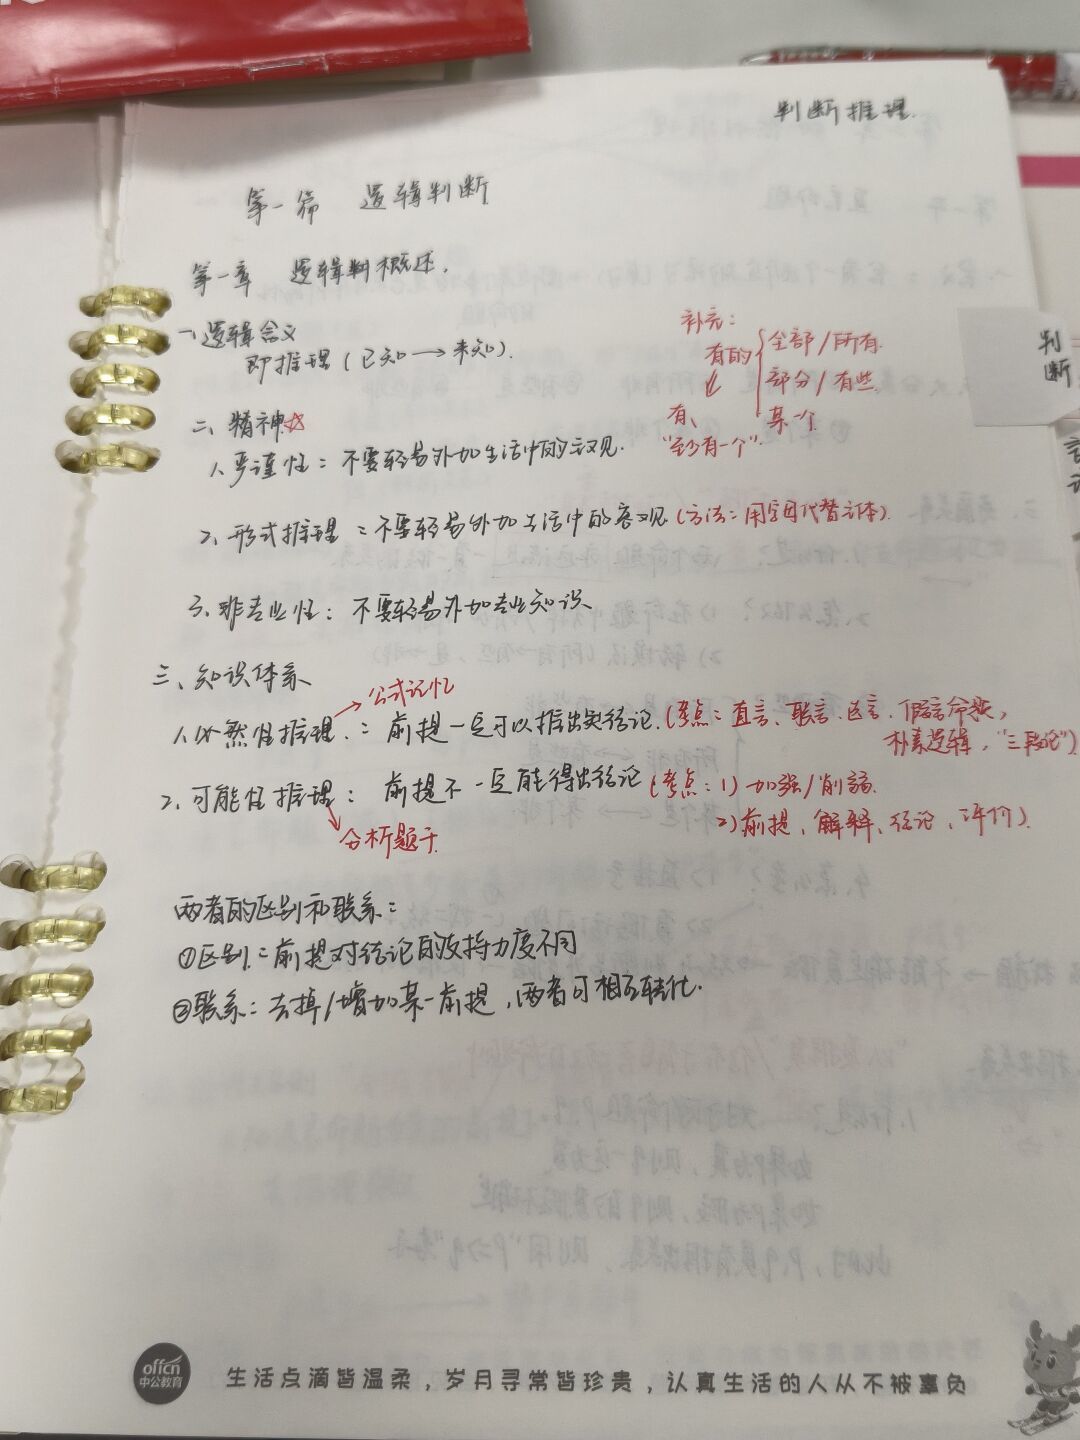 判断推理.
第一篇 逻辑判断
第一章 逻辑判概述.
一、逻辑含义
即推理(已知→未知).
补充:
有的
全部/所有.
部分/有些
某一个
有、
"至少有一个".
判
断
二、精神☆
1、严谨性:不要轻易外加生活中的主观.
2、形式推理:不要轻易外加生活中的客观(方法:用字母代替主体).
3、非专业性:不要轻易外加专业知识
三、知识体系
公式记忆
1、必然性推理.:前提一定可以推出结论.(考点:直言、联言、选言、假言命题,
朴素逻辑,"三段论")
2、可能性推理:前提不一定能得出结论(考点:1)加强/削弱.
2)前提、解释、结论、评价).
分析题干
两者的区别和联系:
①区别:前提对结论的支持力度不同
②联系:去掉/增加某一前提,两者可相互转化.
offcn
中公教育
生活点滴皆温柔,岁月寻常皆珍贵,认真生活的人从不被辜负